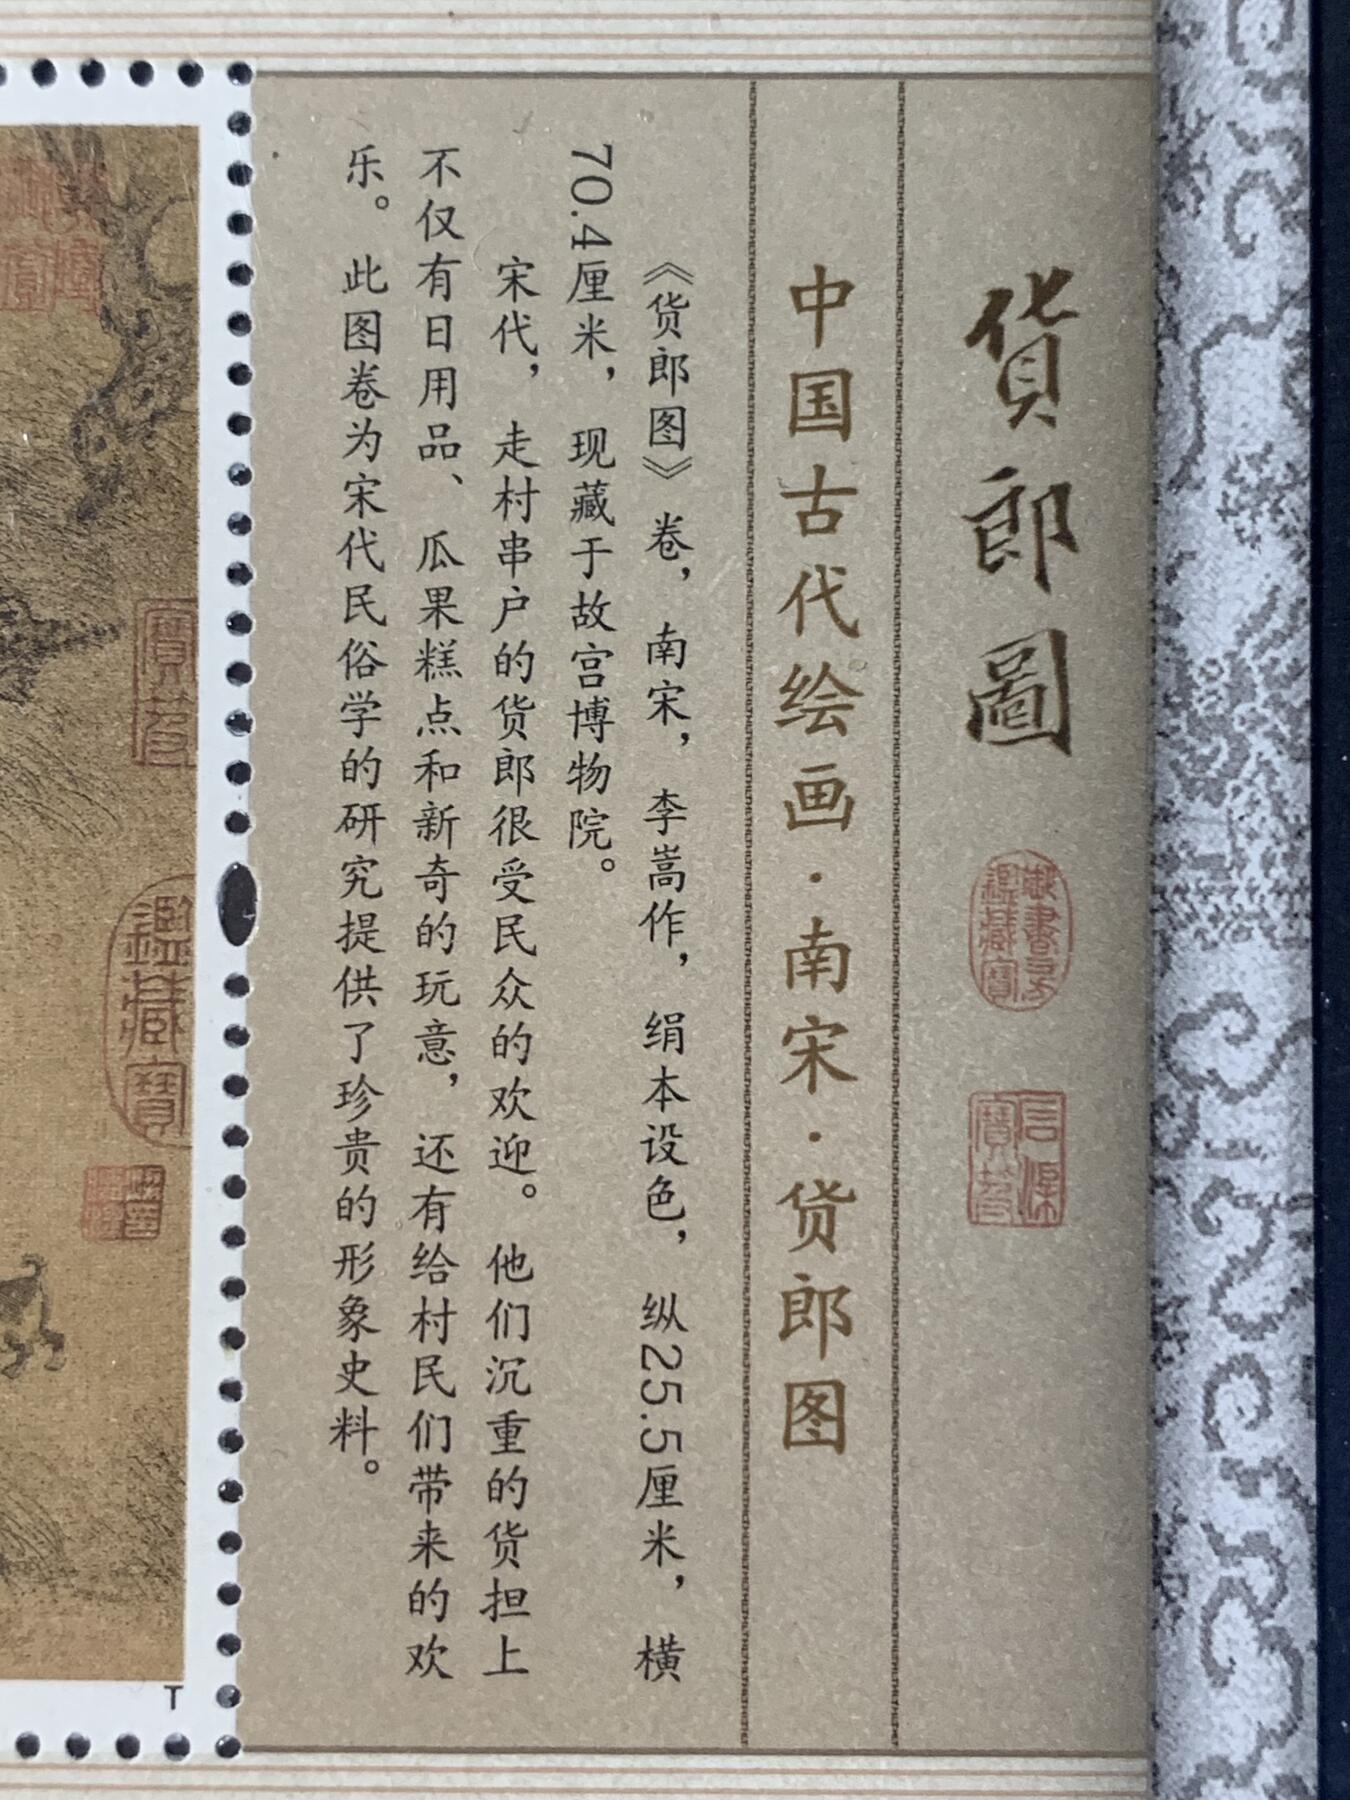 貨郎圖
鑑藏寶
中国古代绘画·南宋·货郎图
《货郎图》卷，南宋，李嵩作，绢本设色，纵25.5厘米，横
70.4厘米，现藏于故宫博物院。
宋代，走村串户的货郎很受民众的欢迎。他们沉重的货担上
不仅有日用品、瓜果糕点和新奇的玩意，还有给村民们带来的欢
乐。此图卷为宋代民俗学的研究提供了珍贵的形象史料。
鑑藏寶
T